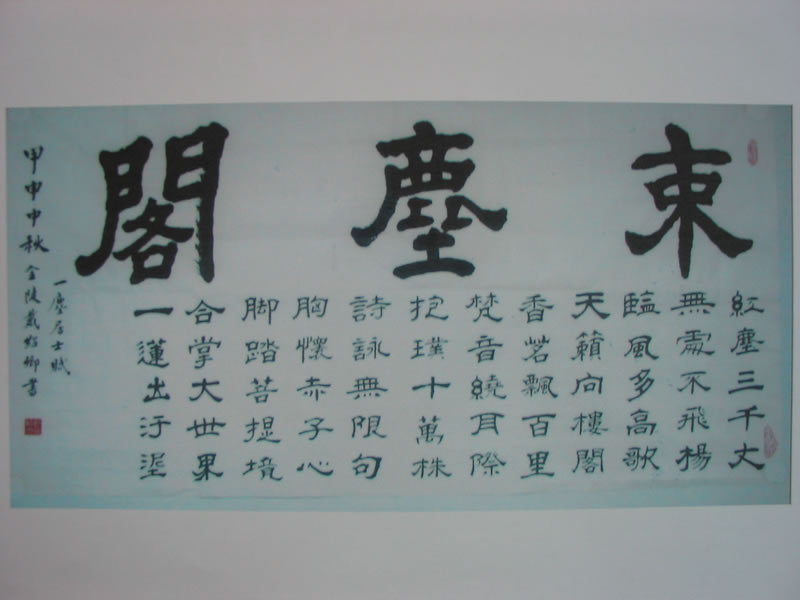 束塵閣
紅塵三千丈
無處不飛楊
臨風多高歌
天籟向樓閣
香茗飄百里
梵音繞耳際
抱璞十萬株
詩詠無限句
胸懷赤子心
脚踏菩提境
合掌大世果
一蓮出汙泥
一塵居士賦
甲申中秋金陵戴卿書